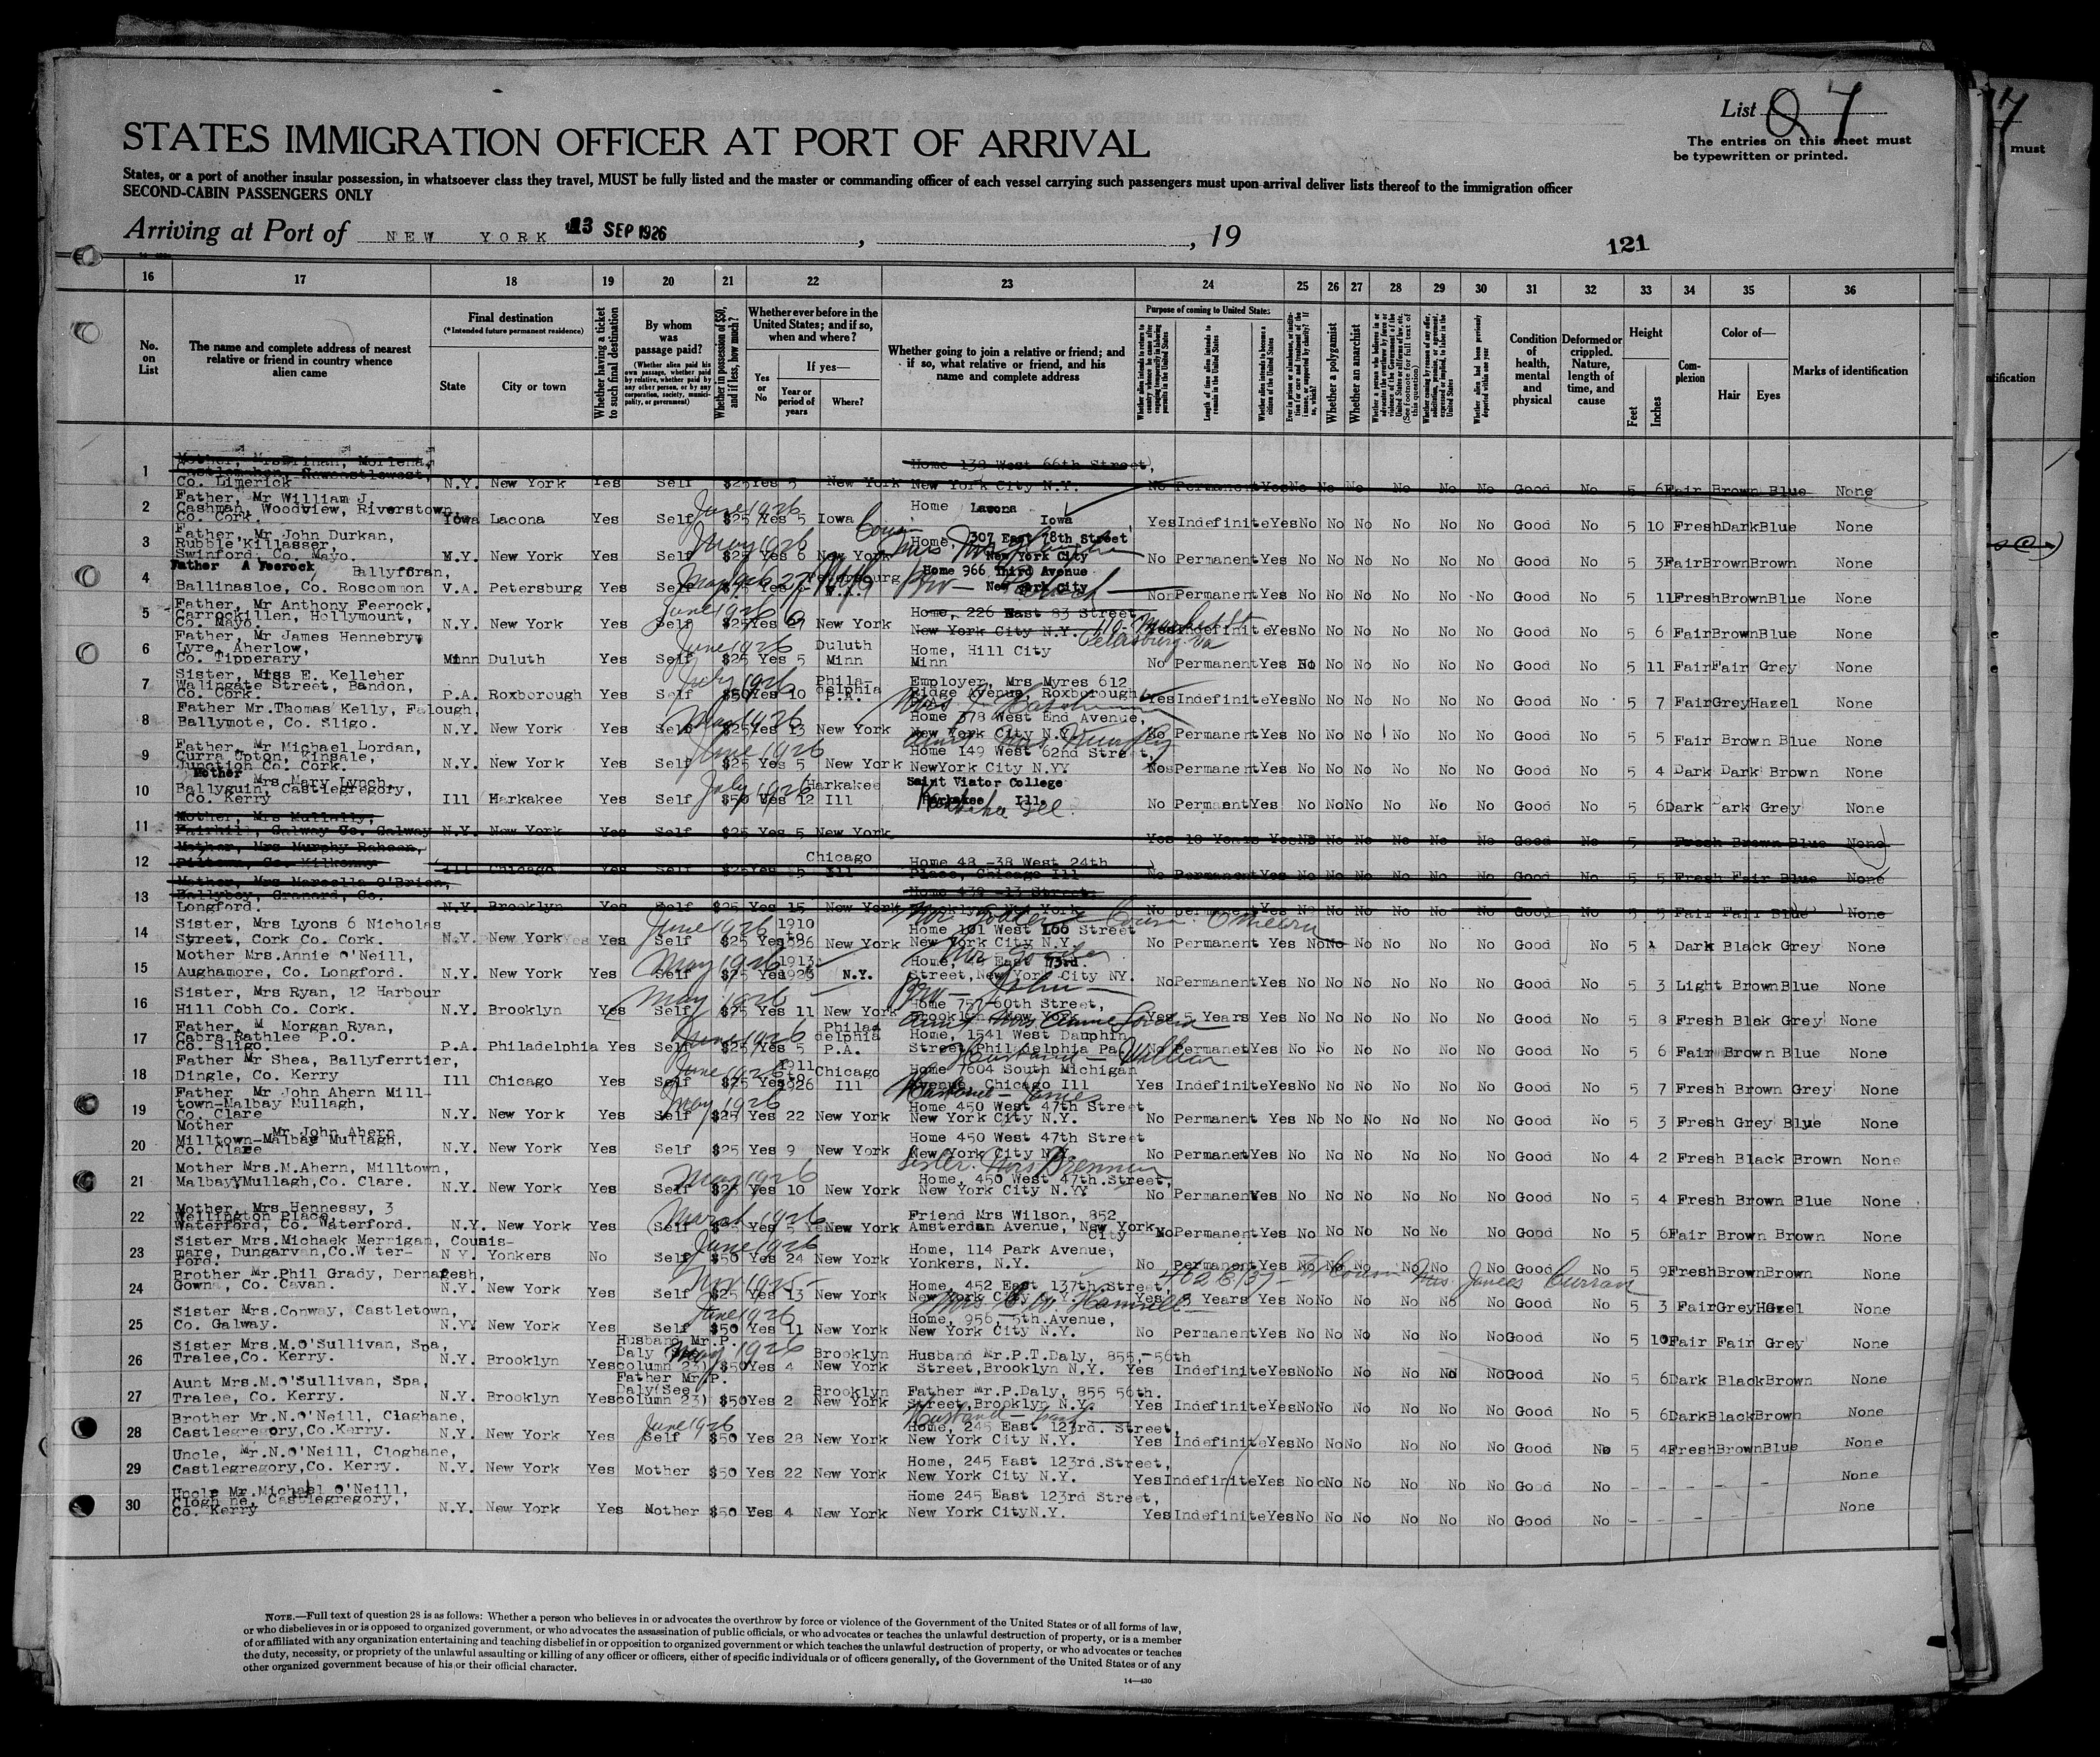 List 87
The entries on this sheet must
be typewritten or printed.
STATES IMMIGRATION OFFICER AT PORT OF ARRIVAL
States, or a port of another insular possession, in whatsoever class they travel, MUST be fully listed and the master or commanding officer of each vessel carrying such passengers must upon arrival deliver lists thereof to the immigration officer
SECOND-CABIN PASSENGERS ONLY
Arriving at Port of NEW YORK 13 SEP 1926, , 19
121
16 17 18 19 20 21 22 23 24 25 26 27 28 29 30 31 32 33 34 35 36
No. on List
The name and complete address of nearest relative or friend in country whence alien came
Final destination
(*Intended future permanent residence)
State
City or town
Whether having a ticket to such final destination
By whom was passage paid?
(Whether alien paid his own passage, whether paid by relative, whether paid by any other person, or by any corporation, society, municipality, or government)
Whether in possession of $50, and if less, how much?
Whether ever before in the United States; and if so, when and where?
Yes or No
If yes—
Year or period of years
Where?
Whether going to join a relative or friend; and if so, what relative or friend, and his name and complete address
Purpose of coming to United States:
Length of time alien intends to remain in the United States
Whether alien intends to become a citizen of the United States
Whether a polygamist
Whether an anarchist
Condition of health, mental and physical
Deformed or crippled. Nature, length of time, and cause
Height
Feet
Inches
Complexion
Color of—
Hair
Eyes
Marks of identification
1 Co. Limerick N.Y. New York Yes Self $25 Yes 5 New York Home 139 West 66th Street, New York City N.Y. No Permanent Yes No No No No No No Good No 5 6 Fair Brown Blue None
2 Father, Mr William J. Cashman, Woodview, Riverstown, Co. Cork. Iowa Lacona Yes Self June 1926 $25 Yes 5 Iowa Home Lacona Iowa Yes Indefinite Yes No No No No No No Good No 5 10 Fresh Dark Blue None
3 Father, Mr John Durkan, Rubble Killasser, Swinford, Co. Mayo. N.Y. New York Yes Self May 1926 $25 Yes 6 New York Home, 307 East 78th Street New York City No Permanent Yes No No No No No No Good No 5 3 Fair Brown Brown None
4 Father A Feerock Ballyforan, Ballinasloe, Co. Roscommon V.A. Petersburg Yes Self Yes Home 966 Third Avenue New York City Non Permanent Yes No No No No No No Good No 5 11 Fresh Brown Blue None
5 Father, Mr Anthony Feerock, Carrockillen, Hollymount, Co. Mayo. N.Y. New York Yes Self June 1926 $25 Yes 27 New York Home, 226 East 83 Street, New York City N.Y. 110 Market St Petersburg Va Yes Indefinite Yes No No No No No No Good No 5 6 Fair Brown Blue None
6 Father, Mr James Hennebry, Lyre, Aherlow, Co. Tipperary Minn Duluth Yes Self June 1926 $25 Yes 5 Duluth Minn Home, Hill City Minn No Permanent Yes No No No No No No Good No 5 11 Fair Fair Grey None
7 Sister, Miss E. Kelleher Walingate Street, Bandon, Co. Cork. P.A. Roxborough Yes Self July 1926 $50 Yes 10 Philadelphia P.A. Employer, Mrs Myres 612 Ridge Avenue, Roxborough Yes Indefinite Yes No No No No No No Good No 5 7 Fair Grey Hazel None
8 Father Mr. Thomas Kelly, Falough, Ballymote, Co. Sligo. N.Y. New York Yes Self May 1926 $25 Yes 13 New York Home 378 West End Avenue, New York City N.Y. No Permanent Yes No No No No No No Good No 5 5 Fair Brown Blue None
9 Father, Mr Michael Lordan, Curra Upton, Kinsale, Junction Co. Cork. N.Y. New York Yes Self June 1926 $25 Yes 5 New York Aunt Mrs Murphy Home 149 West 62nd Street, New York City N.YY No Permanent Yes No No No No No No Good No 5 4 Dark Dark Brown None
10 Mother Mrs Mary Lynch, Ballyguin, Castlegregory, Co. Kerry Ill Harkakee Yes Self July 1926 $50 Yes 12 Harkakee Ill Saint Viator College Ill. No Permaent Yes No No No No No No Good No 5 6 Dark Dark Grey None
11 Mother, Mrs Mullally, Fairhill, Galway Co. Galway N.Y. New York Yes Self $25 Yes 5 New York Yes 10 Years Yes No No No No No No Good No 5 Fresh Brown Blue None
12 Mother, Mrs Murphy Raheen, Piltown, Co. Kilkenny Ill Chicago Yes Self $25 Yes 5 Chicago Ill Home 48 -38 West 24th Place, Chicago Ill No Permanent Yes No No No No No No Good No 5 5 Fresh Fair Blue None
13 Mother, Mrs Marcella O'Brien, Ballyboy, Granard, Co. Longford. N.Y. Brooklyn Yes Self $25 Yes 15 New York Home 439 -13 Street. Brooklyn New York No permanent Yes No No No No No No Good No 5 5 Fair Fair Blue None
14 Sister, Mrs Lyons 6 Nicholas Street, Cork Co. Cork. N.Y. New York Yes Self June 1926 $25 Yes 1910 to 1926 New York Home 101 West 100 Street New York City N.Y. No Permanent Yes No No No No No No Good No 5 Dark Black Grey None
15 Mother Mrs. Annie O'Neill, Aughamore, Co. Longford. N.Y. New York Yes Self May 1926 $25 Yes 1913- 1926 N.Y. Home, 49 East 73rd. Street, New York City NY. No Permanent Yes No No No No No No Good No 5 3 Light Brown Blue None
16 Sister, Mrs Ryan, 12 Harbour Hill Cobh Co. Cork. N.Y. Brooklyn Yes Self May 1926 $25 Yes 11 New York Bro - John - Home 757-60th Street, Brooklyn New York Yes 5 Years Yes No No No No No No Good No 5 8 Fresh Blak Grey None
17 Father, M Morgan Ryan, Cabra Rathlee P.O. Co. Sligo. P.A. Philadelphia Yes Self June 1926 $25 Yes 5 Philadelphia P.A. Aunt Mrs Annie Home, 1541 West Dauphin Street Philadelphia Pa. No Permanet Yes No No No No No No Good No 5 6 Fair Brown Blue None
18 Father Mr Shea, Ballyferrtier, Dingle, Co. Kerry Ill Chicago Yes Self June 1926 $25 Yes 1911 to 1926 Chicago Ill Husband - William Home 7604 South Michigan Avenue, Chicago Ill Yes Indefinite Yes No No No No No No Good No 5 7 Fresh Brown Grey None
19 Father Mr John Ahern Milltown-Malbay Mullagh, Co. Clare N.Y. New York Yes Self May 1926 $25 Yes 22 New York Husband - James Home 450 West 47th Street New York City N.Y. No Permanent Yes No No No No No No Good No 5 3 Fresh Grey Blue None
20 Mother Mr. John Ahern Milltown-Malbay Mullagh, Co. Clare N.Y. New York Yes Self $25 Yes 9 New York Home 450 West 47th Street New York City N.Y. No Permanet Yes No No No No No No Good No 4 2 Fresh Black Brown None
21 Mother Mrs. M. Ahern, Milltown, Malbay Mullagh, Co. Clare. N.Y. New York Yes Self May 1926 $25 Yes 10 New York Sister. Mrs Brennan Home, 450 West 47th. Street, New York City N.YY No Permanent Yes No No No No No No Good No 5 4 Fresh Brown Blue None
22 Mother, Mrs Hennessy, 3 Wellington Place, Waterford, Co. Waterford. N.Y. New York Yes Self March 1926 $25 Yes 5 New York Friend Mrs Wilson, 852 Amsterdam Avenue, New York City No Permanent Yes No No No No No No Good No 5 6 Fair Brown Brown None
23 Sister Mrs. Michaek Merrigan, Cousismare, Dungarvan, Co. W ter-ford. N.Y. Yonkers No Self June 1926 $50 Yes 24 New York Home, 114 Park Avenue, Yonkers, N.Y. No Permanent Yes No No No No No No Good No 5 9 Fresh Brown Brown None
24 Brother Mr. Phil Grady, Gowna, Co. Cavan. N.Y. New York Yes Self Nov 1925 - $25 Yes 13 New York Home, 452 East 137th Street, New York City N.Y. 462 E 137 - Cousin Mrs James Curran Yes, Years Yes No No No No No No Good No 5 3 Fair Grey Hazel None
25 Sister Mrs. Conway, Castletown, Co. Galway. N.YY New York Yes Self June 1926 $50 Yes 11 New York Home, 956, 5th. Avenue, New York City N.Y. No Permanent Yes No No No No No No Good No 5 10 Fair Fair Grey None
26 Sister Mrs. M. O'Sullivan, Spa, Tralee, Co. Kerry. N.Y. Brooklyn Yes Husband Mr. P. Daly (See column 23) May 1926 $50 Yes 4 Brooklyn New York Husband Mr. P.T. Daly, 855,-56th Street, Brooklyn N.Y. Yes Indefinite Yes No No No No No No Good No 5 6 Dark Black Brown None
27 Aunt Mrs. M. O'Sullivan, Spa, Tralee, Co. Kerry. N.Y. Brooklyn Yes Father Mr. P. Daly (See column 23) $50 Yes 2 Brooklyn New York Father Mr. P. Daly, 855 56th. Street, Brooklyn N.Y. Yes Indefinite Yes No No No No No No Good No 5 6 Dark Black Brown None
28 Brother Mr. N. O'Neill, Claghane, Castlegregory, Co. Kerry. N.Y. New York Yes Self June 1926 $50 Yes 28 New York Home, 245 East 123rd. Street, New York City N.Y. Yes Indefinite Yes No No No No No No Good No 5 4 Fresh Brown Blue None
29 Uncle, Mr. N. O'Neill, Cloghane, Castlegregory, Co. Kerry. N.Y. New York Yes Mother $50 Yes 22 New York Home, 245 East 123rd. Street, New York City N.Y. Yes Indefinite Yes No No No No No No Good No - - - - - None
30 Uncle Mr. Michael O'Neill, Clogh ne, Castlegregory, Co. Kerry N.Y. New York Yes Mother $50 Yes 4 New York Home 245 East 123rd Street, New York City N.Y. Yes Indefinite Yes No No No No No No Good No - - - - - None
NOTE.—Full text of question 28 is as follows: Whether a person who believes in or advocates the overthrow by force or violence of the Government of the United States or of all forms of law,
or who disbelieves in or is opposed to organized government, or who advocates the assassination of public officials, or who advocates or teaches the unlawful destruction of property, or is a member
of or affiliated with any organization entertaining and teaching disbelief in or opposition to organized government or which teaches the unlawful destruction of property, or who advocates or teaches
the duty, necessity, or propriety of the unlawful assaulting or killing of any officer or officers, either of specific individuals or of officers generally, of the Government of the United States or of any
other organized government because of his or their official character.
14—430